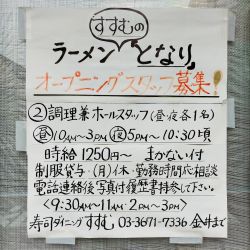 すすむの
ラーメン「となり」
オープニングスタッフ募集!
②調理兼ホールスタッフ(昼・夜各1名)
昼10AM〜3PM 夜5PM〜10:30頃
時給1250円〜 まかない付
制服貸与・(月)休・勤務時間応相談
電話連絡後写真付履歴書持参して下さい。
<9:30AM〜11AM・2PM〜3PM>
寿司ダイニングすすむ 03-3671-7336 金井まで